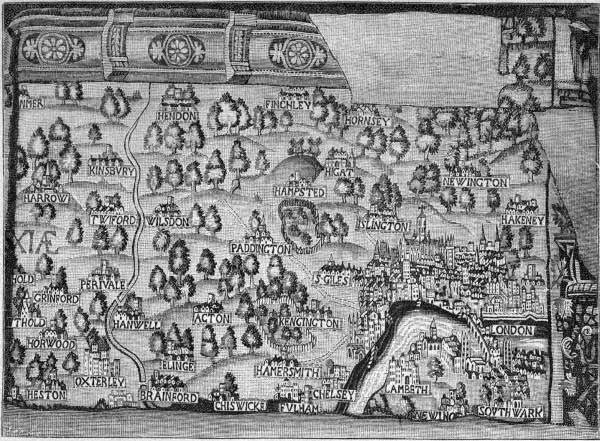 HENDON
FINCHLEY
HORNSEY
KINSBVRY
HIGAT
HAMPSTED
NEWINGTON
HARROW
TWIFORD
WILSDON
ISLINGTON
HAKENEY
PADDINGTON
XIÆ
S GILES
PERIVALE
GRINFORD
HANWELL
ACTON
KENCINGTON
LONDON
HORWOOD
ELINGE
HAMERSMITH
OXTERLEY
HESTON
BRAINFORD
CHISWICKE
FVLHAM
CHELSEY
LAMBETH
NEWING
SOVTHWARK